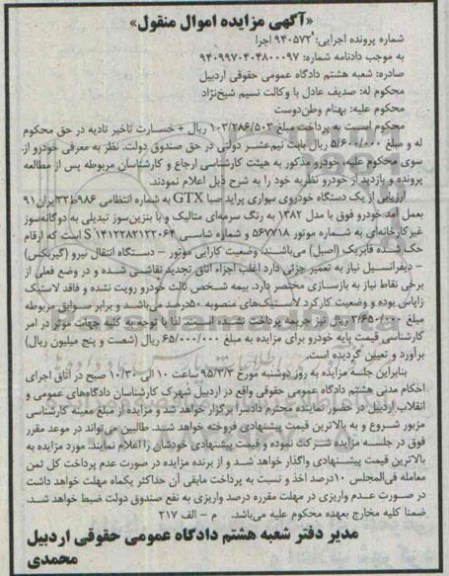 «آگهی مزایده اموال منقول»
شماره پرونده اجرایی: ۹۴۰۵۷۲ اجرا
به موجب دادنامه شماره: ۹۴۰۹۹۷۰۴۰۴۸۰۰۰۹۷
صادره: شعبه هشتم دادگاه عمومی حقوقی اردبیل
محکوم له: صدیف عادل با وکالت نسیم شیخ‌نژاد
محکوم علیه: بهنام وطن‌دوست
محکوم است به پرداخت مبلغ ۱۰۳/۲۸۶/۵۰۳ ریال + خسارت تاخیر تادیه در حق محکوم
له و مبلغ ۵/۶۰۰/۰۰۰ ریال بابت نیم‌عشر دولتی در حق صندوق دولت. نظر به معرفی خودرو از
سوی محکوم علیه، خودرو مذکور به هیئت کارشناسی ارجاع و کارشناسان مربوطه پس از مطالعه
پرونده و بازدید از خودرو نظریه خود را به شرح ذیل اعلام نمودند.
ارزیابی از یک دستگاه خودروی سواری پراید صبا GTX به شماره انتظامی ۹۸۶ط۳۲ایران۹۱
بعمل آمد خودرو فوق با مدل ۱۳۸۲ به رنگ سرمه‌ای متالیک و با بنزین‌سوز تبدیلی به دوگانه‌سوز
غیرکارخانه‌ای به شماره موتور ۵۶۷۷۱۸ و شماره شاسی S۱۴۱۲۲۸۲۱۲۲۰۶۴ است که ارقام
حک شده فابریک (اصیل) می‌باشند، وضعیت کارایی موتور - دستگاه انتقال نیرو (گیربکس)
- دیفرانسیل نیاز به تعمیر جزئی دارد اغلب اجزاء اتاق تجدید نقاشی شده و در وضع فعلی از
برخی نقاط نیاز به بازسازی مختصر دارد. بیمه شخص ثالث خودرو رویت نشده و فاقد لاستیک
زاپاس بوده و وضعیت کارکرد لاستیک‌های منصوبه ۵۰درصد می‌باشد و برابر سوابق مربوطه
مبلغ ۳/۶۵۰/۰۰۰ ریال نیز جریمه پرداخت نشده است. لذا با توجه به کلیه جهات موثر در امر
کارشناسی قیمت پایه خودرو برای مزایده به مبلغ ۶۵/۰۰۰/۰۰۰ ریال (شصت و پنج میلیون ریال)
برآورد و تعیین گردیده است.
بنابراین جلسه مزایده به روز دوشنبه مورخ ۹۵/۳/۳ ساعت ۱۰ الی ۱۰/۳۰ صبح در اتاق اجرای
احکام مدنی هشتم دادگاه عمومی حقوقی واقع در اردبیل شهرک کارشناسان دادگاه‌های عمومی و
انقلاب اردبیل در حضور نماینده محترم دادسرا برگزار خواهد شد و مزایده از مبلغ معینه کارشناسی
مزبور شروع و به بالاترین قیمت پیشنهادی فروخته خواهد شد. طالبین می‌تواند در موعد مقرر
فوق در جلسه مزایده شرکت نموده و قیمت پیشنهادی خودشان را اعلام نمایند. مورد مزایده به
بالاترین قیمت پیشنهادی واگذار خواهد شد و از برنده مزایده در صورت عدم پرداخت کل ثمن
معامله فی‌المجلس ۱۰درصد اخذ و نسبت به پرداخت مابقی آن حداکثر یکماه مهلت خواهد داشت
در صورت عدم واریزی در مهلت مقرره درصد واریزی به نفع صندوق دولت ضبط خواهد شد.
ضمنا کلیه مخارج بعهده محکوم علیه می‌باشد. م - الف ۲۱۷
مدیر دفتر شعبه هشتم دادگاه عمومی حقوقی اردبیل
محمدی